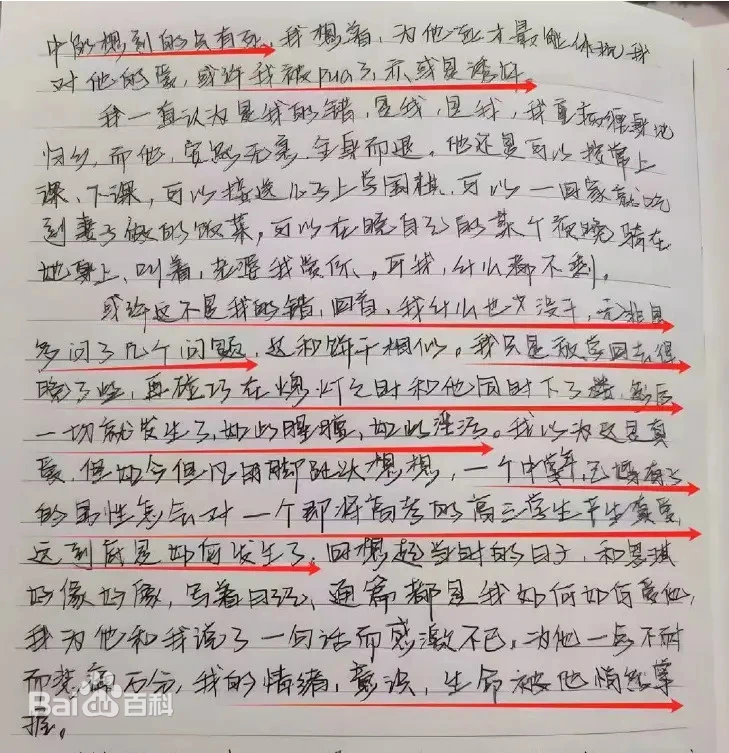 中的想到的只有死，我想着，为他死才最能体现我
对他的爱，或许我被pua了，亦或是诱奸。
我一直认为是我的错，是我，是我，我重病缠身地
归乡，而他，安然无恙，全身而退。他还是可以按常上
课、下课，可以接送儿子上学围棋，可以一回家就吃
到妻子做的饭菜，可以在晚自习的某个夜晚骑在
她身上、叫着，老婆我爱你、可我，什么都不剩。
或许这不是我的错，回首，我什么也没干，无非是
多问了几个问题，这和饼干相似。我只是放学回去得
晚了些，再碰巧在熄灯之时和他同时下了楼，然后
一切就发生了，如此腥膻，如此淫污。我以为这是真
爱，但如今但凡用脚趾头想想，一个中年、已婚有子
的男性怎会对一个即将高考的高三学生产生真爱，
这到底是如何发生了，回想起当时的日子，和思琪
好像好像，写着日记，通篇都是我如何如何爱他，
我为他和我说了一句话而感激不已，为他一点不耐
而悲痛万分，我的情绪，意识，生命被他悄然掌
握。
Bai 百科